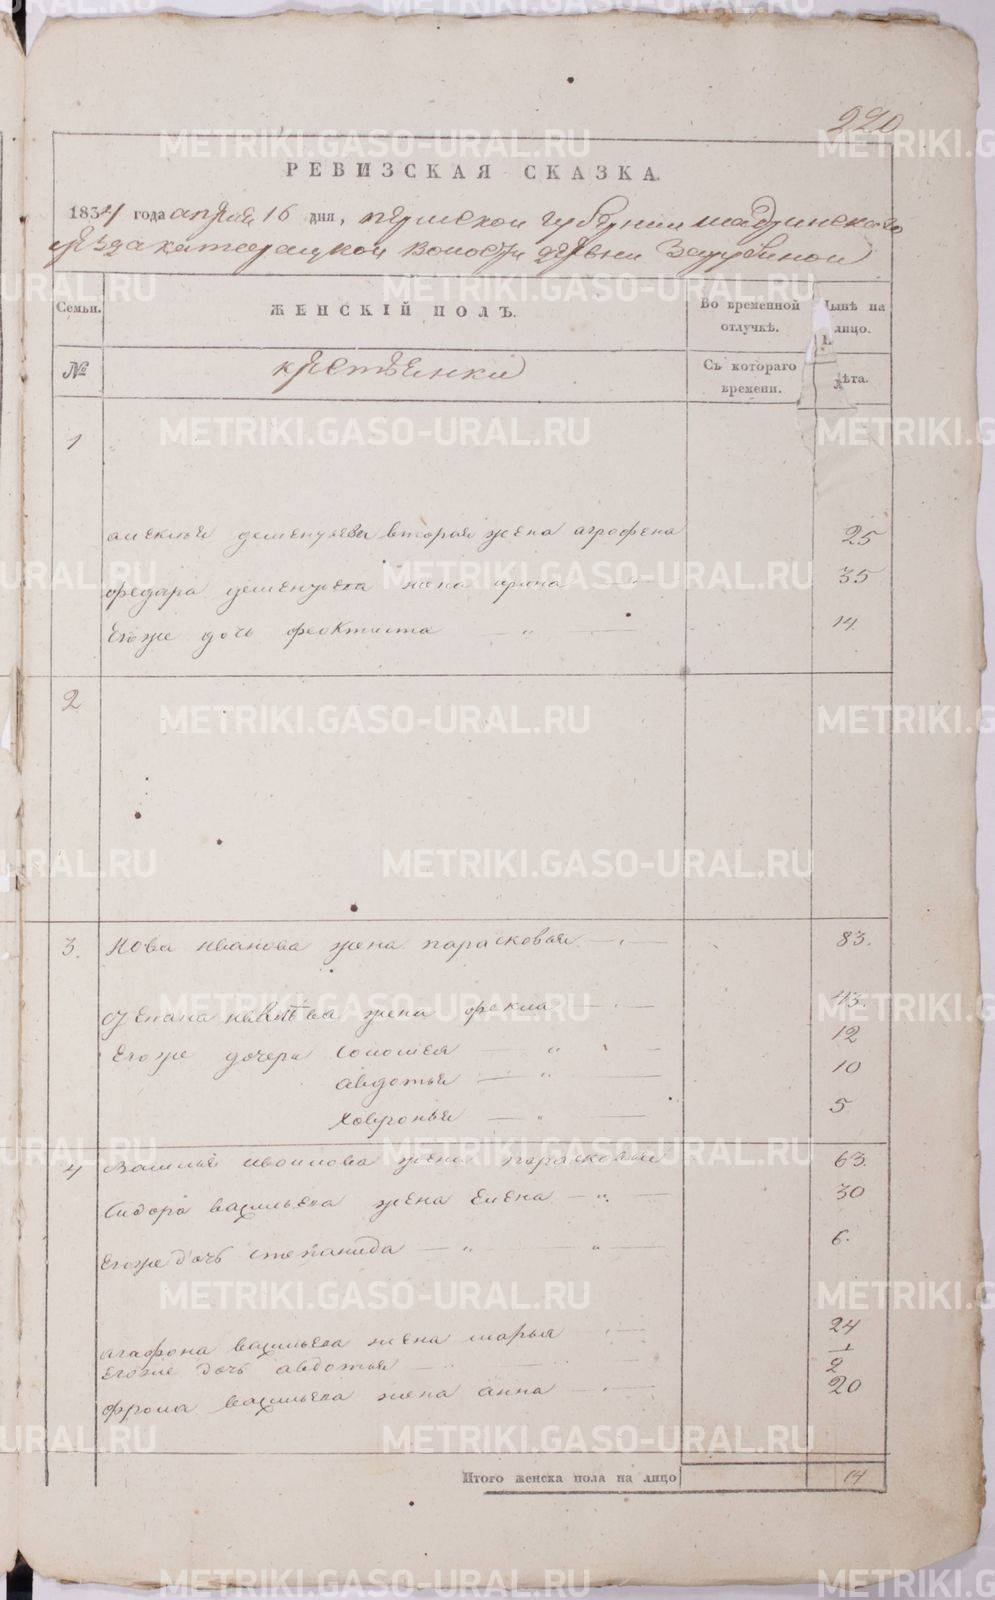 290
РЕВИЗСКАЯ СКАЗКА.
1834 года апреля 16 дня, пермской губернии шадринскаго
уезда катарацкой волости деревни Зарубиной
Семьи. ЖЕНСКІЙ ПОЛЪ. Во временной отлучкѣ. Нынѣ на лицо.
№ крестьянки Съ котораго времени. Лѣта.
1
алексея дементьева вторая жена агрофена 25
федора дементьева жена ирина 35
Егоже дочь феоктиста 14
2
3. Иова иванова жена парасковья 83.
степана жена фекла 43.
Егоже дочери соломея 12
авдотья 10
ховронья 5
4 Василья жена парасковья 63.
Сидора васильева жена Елена 30
Егоже дочь степанида 6.
агафона васильева жена марья 24
Егоже дочь авдотья 1/2
фрола васильева жена анна 20
Итого женска пола на лицо 14
METRIKI.GASO-URAL.RU